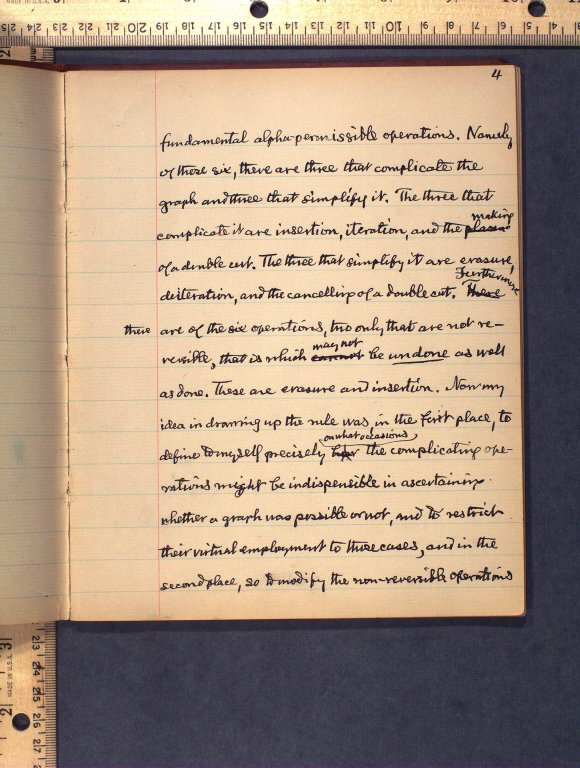 4
fundamental alpha-permissible operations. Namely
of these six, there are three that complicate the
graph and three that simplify it. The three that
making
complicate it are insertion, iteration, and the
of a double cut. The three that simplify it are erasure,
Furthermore
deiteration, and the cancelling of a double cut. There
there are of the six operations, two only that are not re-
may not
versible, that is which cannot be undone as well
as done. These are erasure and insertion. Now my
idea in drawing up the rule was, in the first place, to
on what occasions
define to myself precisely how the complicating ope-
rations might be indispensible in ascertaining
whether a graph was possible or not, and to restrict
their virtual employment to those cases, and in the
second place, so to modify the non-reversible operations